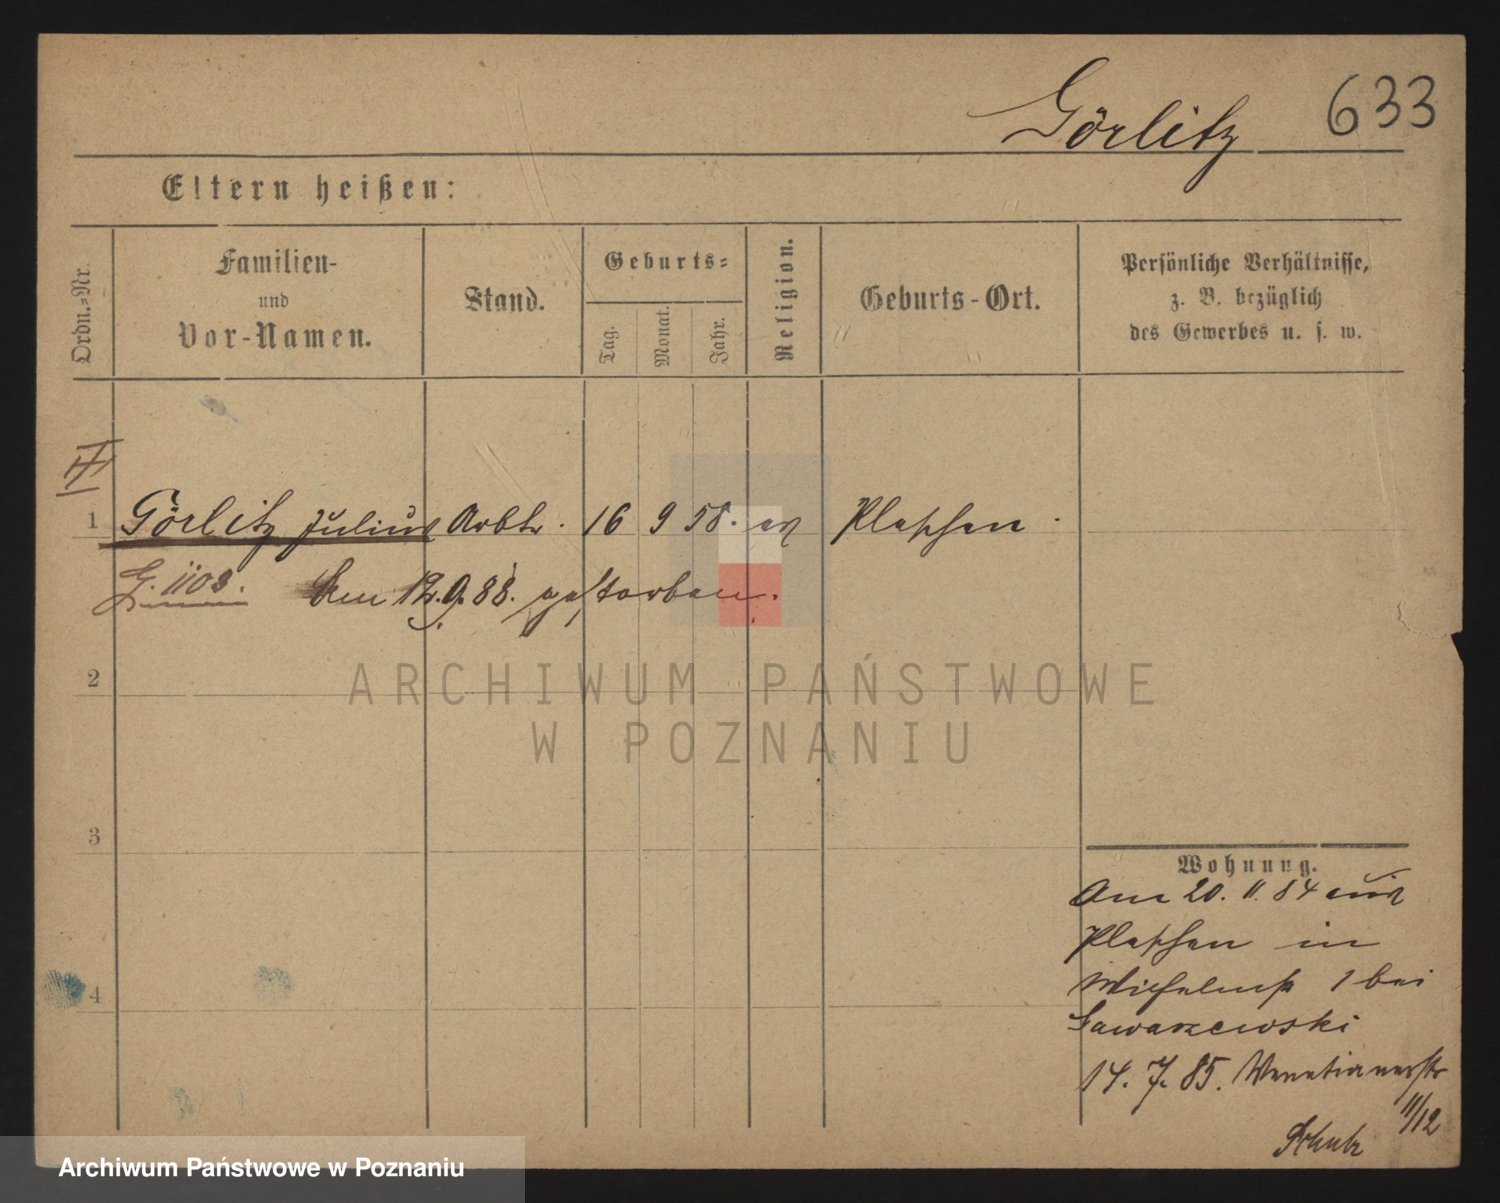 Görlitz 633
Eltern heißen:
Ordn.=Nr.
Familien-
und
Vor-Namen.
Stand.
Geburts=
Tag.
Monat.
Jahr.
Religion.
Geburts-Ort.
Persönliche Verhältnisse,
z. B. bezüglich
des Gewerbes u. s. w.
1 Görlitz Julius Arbtr. 16 9 58. ev Pleschen.
G. 1103. Am 12.9.88. gestorben.
2
3
4
Wohnung.
Am 20. 11. 84 aus
Pleschen in
Wilhelmstr 1 bei
14. 7. 85. Venetianerstr
11/12
Schulz
ARCHIWUM PAŃSTWOWE
W POZNANIU
Archiwum Państwowe w Poznaniu